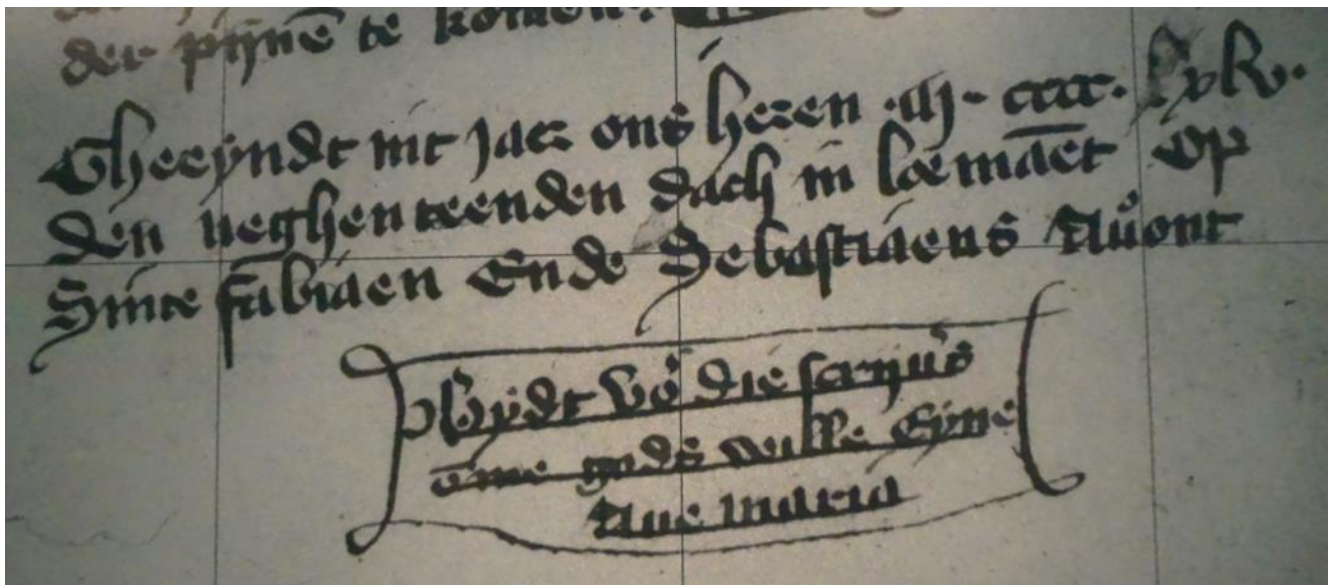 der pijnē te komen
Gheeyndt int jaer ons heren .M. cccc. lxv.
den neghenteenden dach in loemāet Op
Sinte fabiaen Ende Sebastiaens Auont
Bydt vor die scrijuers
ōme gods wille Eyne
Aue maria